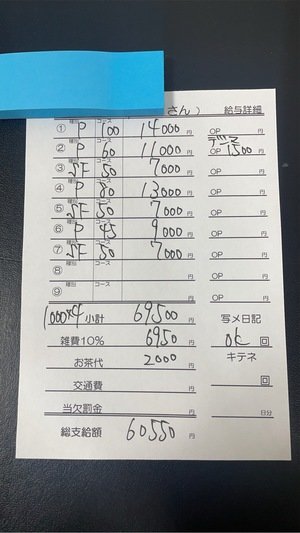 さん) 給与詳細
種別 コース
① P 100 14000円 OP 円
② P 60 11000円 OP デジャ 1500円
③ SF 50 7000円 OP 円
④ P 80 13000円 OP 円
⑤ SF 50 7000円 OP 円
⑥ P 9000円 OP 円
⑦ SF 50 7000円 OP 円
⑧ 円 OP 円
⑨ 円 OP 円
1000×4 小計 69500円 写メ日記
雑費10% 6950円 ok 回
お茶代 2000円 キテネ
交通費 円 回
当欠罰金 円 日分
総支給額 60550円